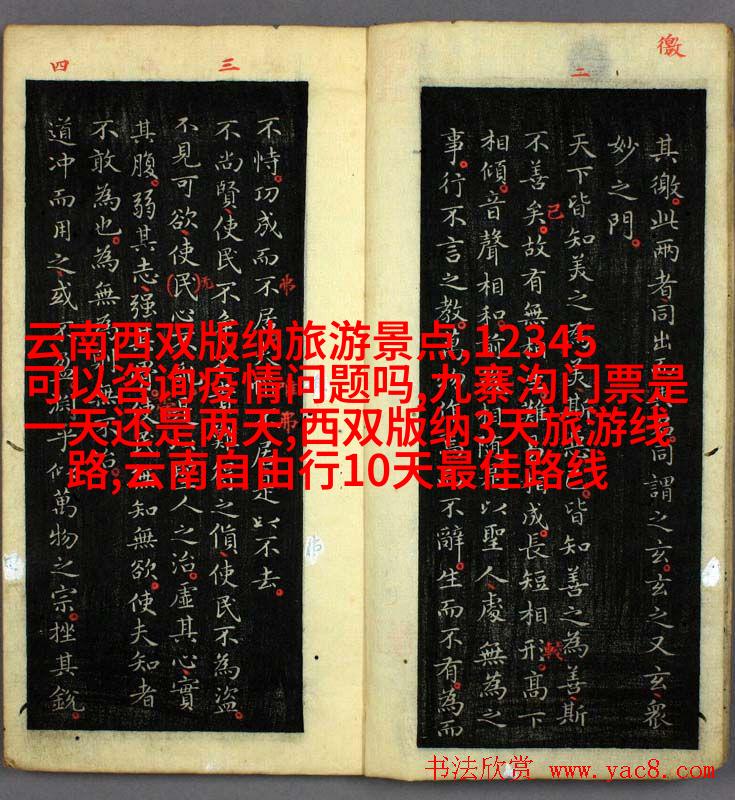 云南西双版纳旅游景点,12345
可以咨询疫情问题吗,九寨沟门票是
一天还是两天,西双版纳3天旅游线
路,云南自由行10天最佳路线
徼
二
其徼此两者同出同謂之玄玄之又玄衆
妙之門
天下皆知美之美斯皆知善之為善斯
不善矣故有無相難相成長短相形高下
相傾音聲相和相以聖人處無為之
事行不言之教萬不辭生而不有為而
已
三
四
不恃功成而不居居是以不去
不尚賢使民不之貨使民不為盜
不見可欲使民心人之治虛其心實
其腹弱其志強使民無知無欲使夫知者
不敢為也為無為
道冲而用之或淵乎似萬物之宗挫其銳
书法欣赏 www.yac8.com